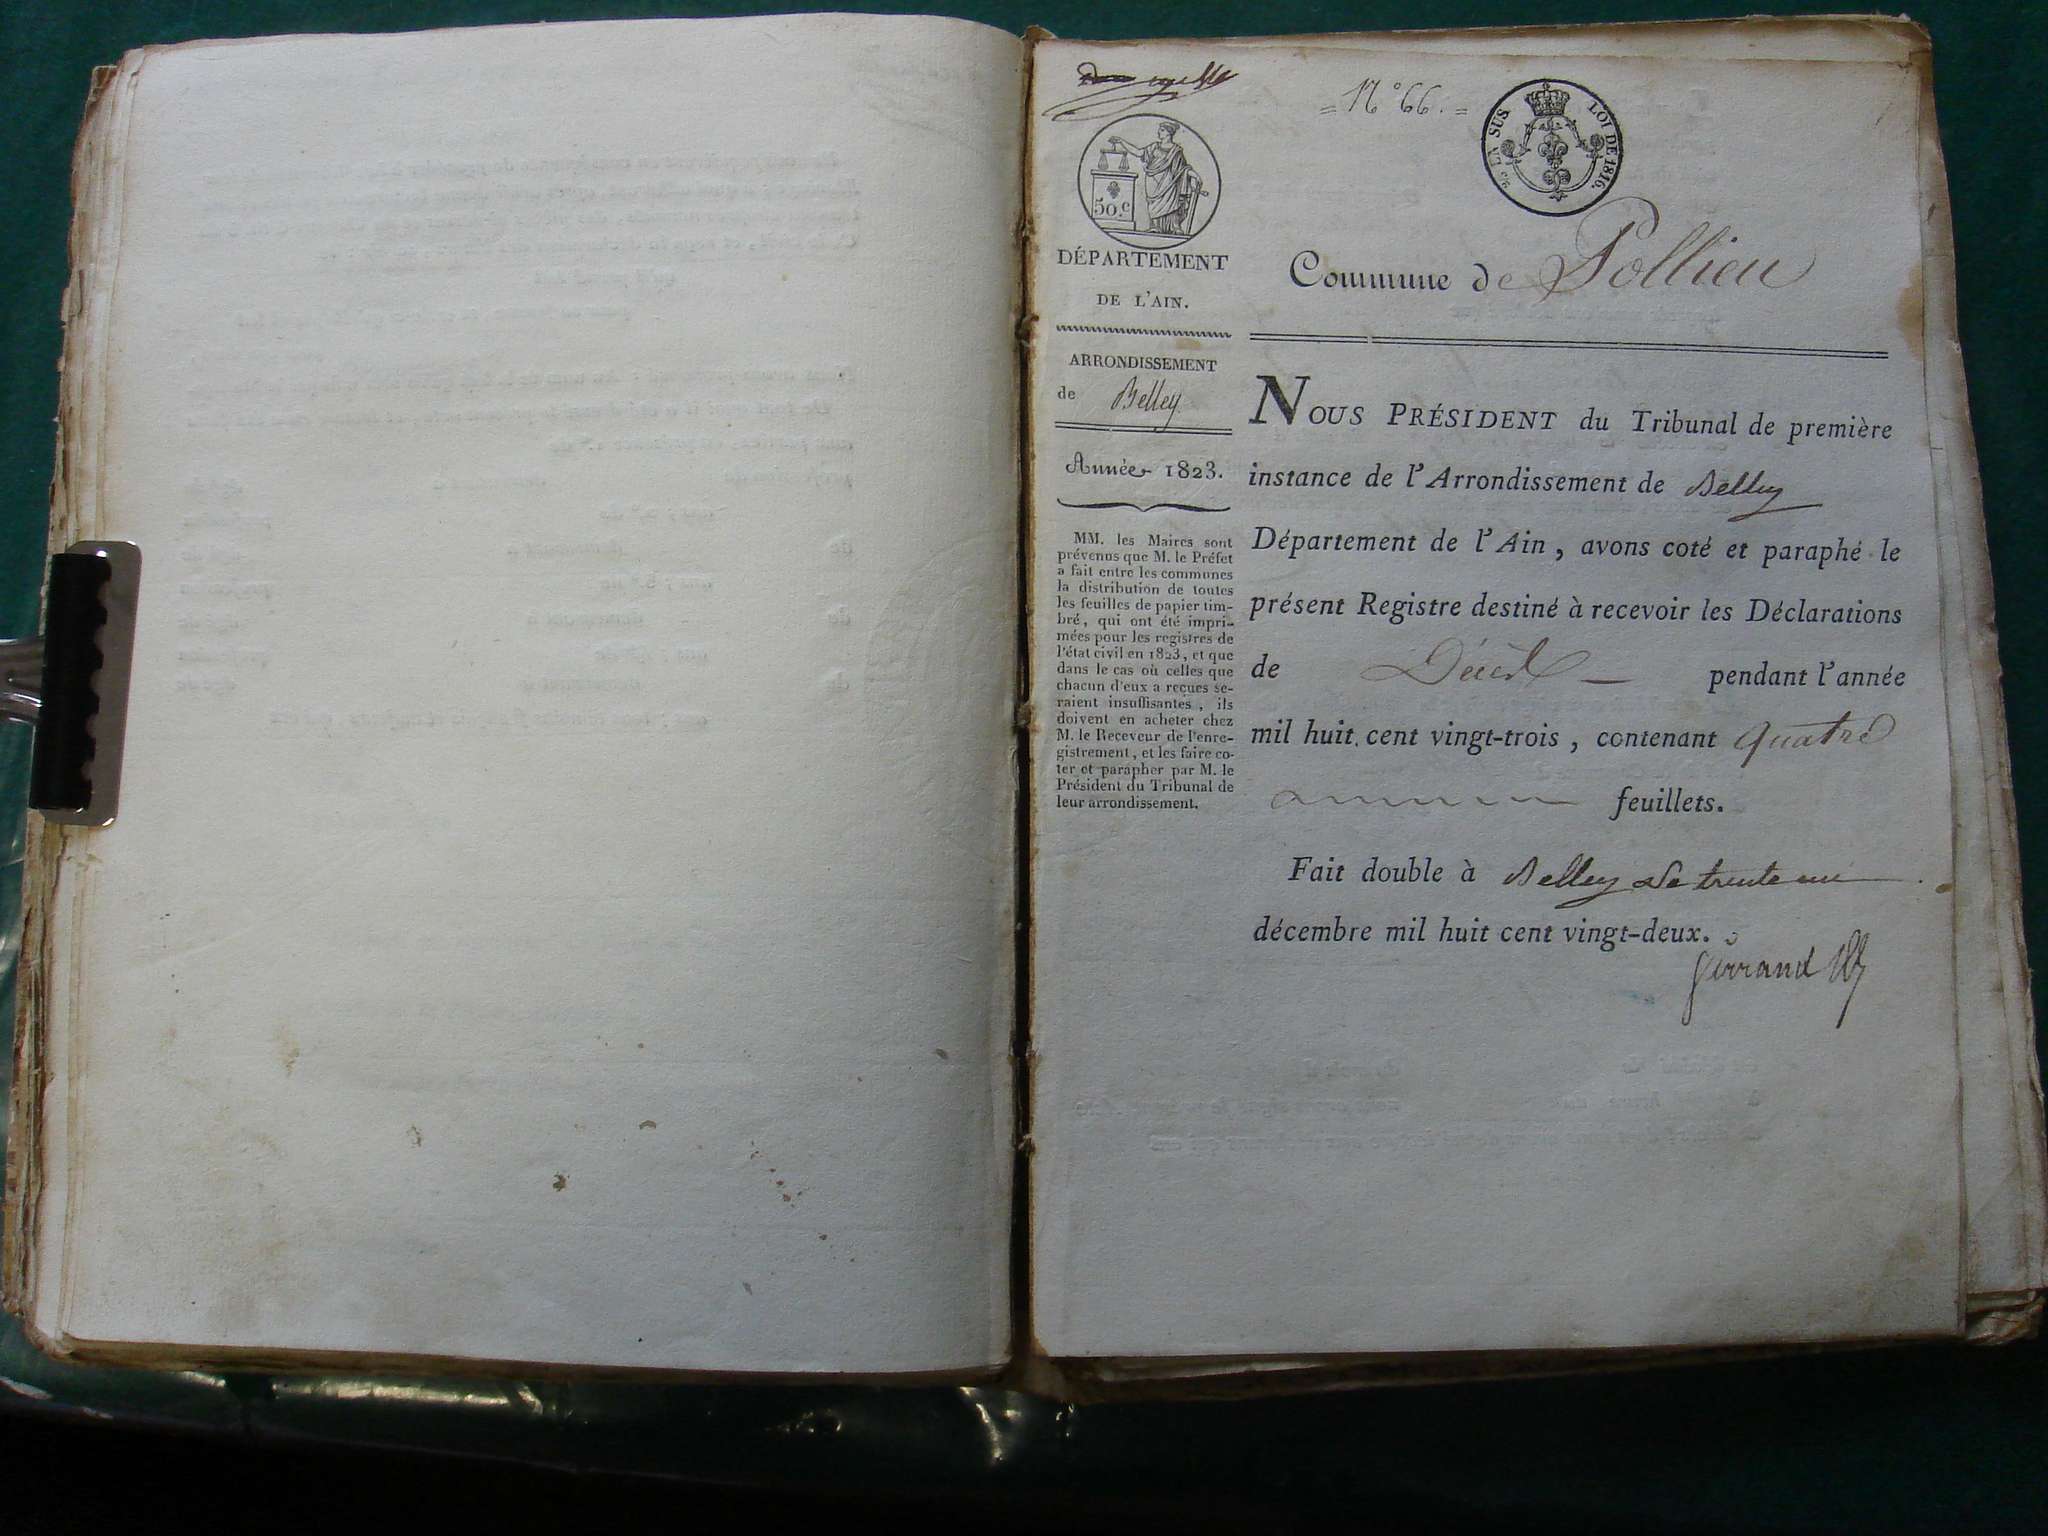 = N° 66. =
LOI DE 1816.
50.c
DÉPARTEMENT
DE L'AIN.
ARRONDISSEMENT
de Belley
Année 1823.
MM. les Maires sont
prévenus que M. le Préfet
a fait entre les communes
la distribution de toutes
les feuilles de papier tim-
bré, qui ont été impri-
mées pour les registres de
l'état civil en 1823, et que
dans le cas où celles que
chacun d'eux a reçues se-
raient insuffisantes, ils
doivent en acheter chez
M. le Receveur de l'enre-
gistrement, et les faire co-
ter et parapher par M. le
Président du Tribunal de
leur arrondissement.
Commune de Pollieu
NOUS PRÉSIDENT du Tribunal de première
instance de l'Arrondissement de Belley
Département de l'Ain, avons coté et paraphé le
présent Registre destiné à recevoir les Déclarations
de Décès pendant l'année
mil huit cent vingt-trois, contenant quatre
feuillets.
Fait double à Belley le trente un
décembre mil huit cent vingt-deux.